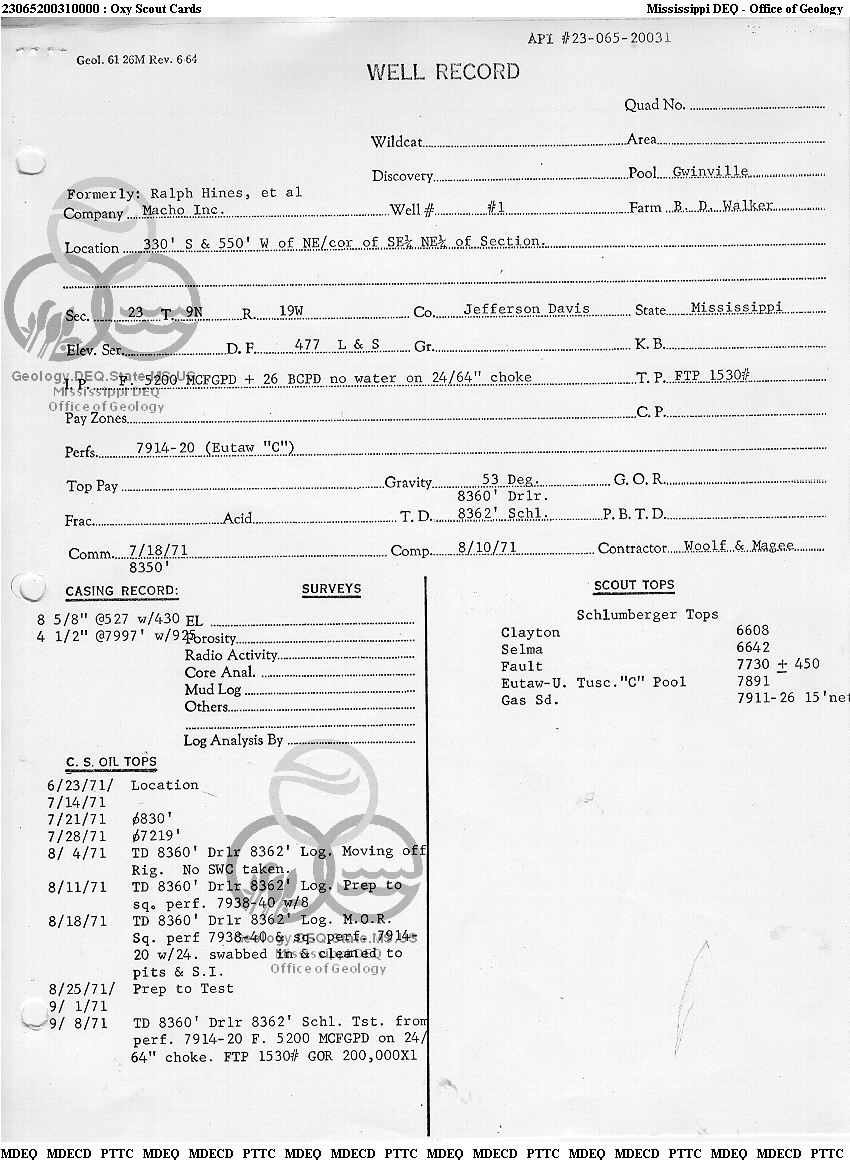 23065200310000 : Oxy Scout Cards Mississippi DEQ - Office of Geology
API #23-065-20031
Geol. 61 26M Rev. 6-64
WELL RECORD
Quad No.
Wildcat Area
Discovery Pool Gwinville
Formerly: Ralph Hines, et al
Company Macho Inc. Well # #1 Farm B. D. Walker
Location 330' S & 550' W of NE/cor of SE¼ NE¼ of Section.
Sec. 23 T. 9N R. 19W Co. Jefferson Davis State Mississippi
Elev. Ser. D. F. 477 L & S Gr. K. B.
Geology.DEQ.State.MS.US
I. P. F. 5200 MCFGPD + 26 BCPD no water on 24/64" choke T. P. FTP 1530#
Mississippi DEQ
Office of Geology
Pay Zones C. P.
Perfs. 7914-20 (Eutaw "C")
Top Pay Gravity 53 Deg. G. O. R.
8360' Drlr.
Frac. Acid T. D. 8362' Schl. P. B. T. D.
Comm. 7/18/71 Comp. 8/10/71 Contractor Woolf & Magee
8350'
CASING RECORD: SURVEYS SCOUT TOPS
8 5/8" @527 w/430 EL
4 1/2" @7997' w/925 Porosity
Radio Activity
Core Anal.
Mud Log
Others
Log Analysis By
Schlumberger Tops
Clayton 6608
Selma 6642
Fault 7730 ± 450
Eutaw-U. Tusc."C" Pool 7891
Gas Sd. 7911-26 15'net
C. S. OIL TOPS
6/23/71/ Location
7/14/71
7/21/71 ǿ830'
7/28/71 ǿ7219'
8/ 4/71 TD 8360' Drlr 8362' Log. Moving off
Rig. No SWC taken.
8/11/71 TD 8360' Drlr 8362' Log. Prep to
sq. perf. 7938-40 w/8
8/18/71 TD 8360' Drlr 8362' Log. M.O.R.
Sq. perf 7938-40 & sq. perf. 7914-
20 w/24. swabbed in & cleaned to
pits & S.I.
Geology.DEQ.State.MS.US
Mississippi DEQ
Office of Geology
8/25/71/ Prep to Test
9/ 1/71
9/ 8/71 TD 8360' Drlr 8362' Schl. Tst. from
perf. 7914-20 F. 5200 MCFGPD on 24/
64" choke. FTP 1530# GOR 200,000X1
MDEQ MDECD PTTC MDEQ MDECD PTTC MDEQ MDECD PTTC MDEQ MDECD PTTC MDEQ MDECD PTTC MDEQ MDECD PTTC